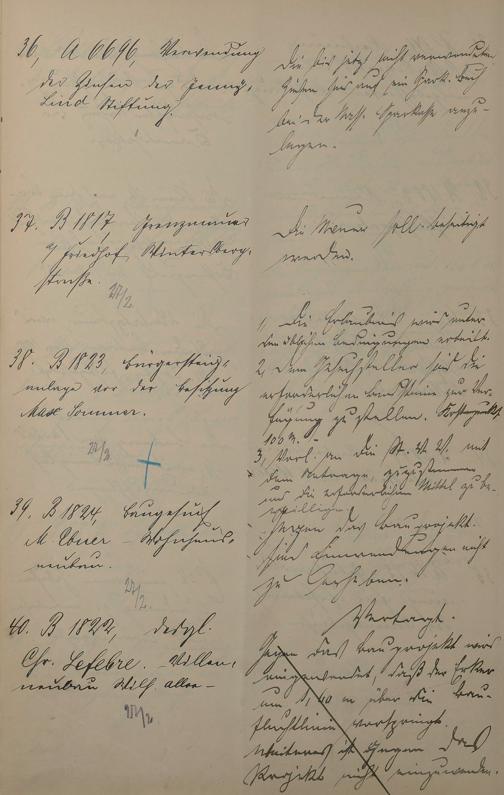 36, A 6696, Verwendung
der Zinsen der Jenny-
Lind Stiftung.
Die bis jetzt nicht verwendeten
Zinsen sind auf ein Spark. Buch
bei der Nass. Sparkasse anzu-
legen.
37. B 1817, Grenzmauer
a/ Friedhof, Wintersberg-
straße.
27/2.
Die Mauer soll beseitigt
werden.
38. B 1823, Bürgersteig-
anlage vor der Besitzung
Max Sommer.
27/2.
1, Die Erlaubnis wird unter
den üblichen Bedingungen erteilt.
2, Dem Gesuchsteller sind die
erforderlichen Bordsteine zur Ver-
fügung zu stellen. Kostenpunkt
100 M. -
3, Vorl. an die St. V. V. mit
dem Antrage, zuzustimmen
und die erforderlichen Mittel zu be-
willigen.
39. B 1824, Baugesuch
M. - Wohnhaus-
neubau.
27/2.
Gegen das Bauprojekt
sind Einwendungen nicht
zu erheben.
40. B 1822, desgl.
Chr. Lefebre. - Villen-
neubau Wilh. allee -
27/2
Vertagt.
Gegen das Bauprojekt wird
eingewendet, daß der Erker
um 1,40 m über die Bau-
fluchtlinie vorspringt.
Weiteres ist gegen das
Projekt nicht einzuwenden.